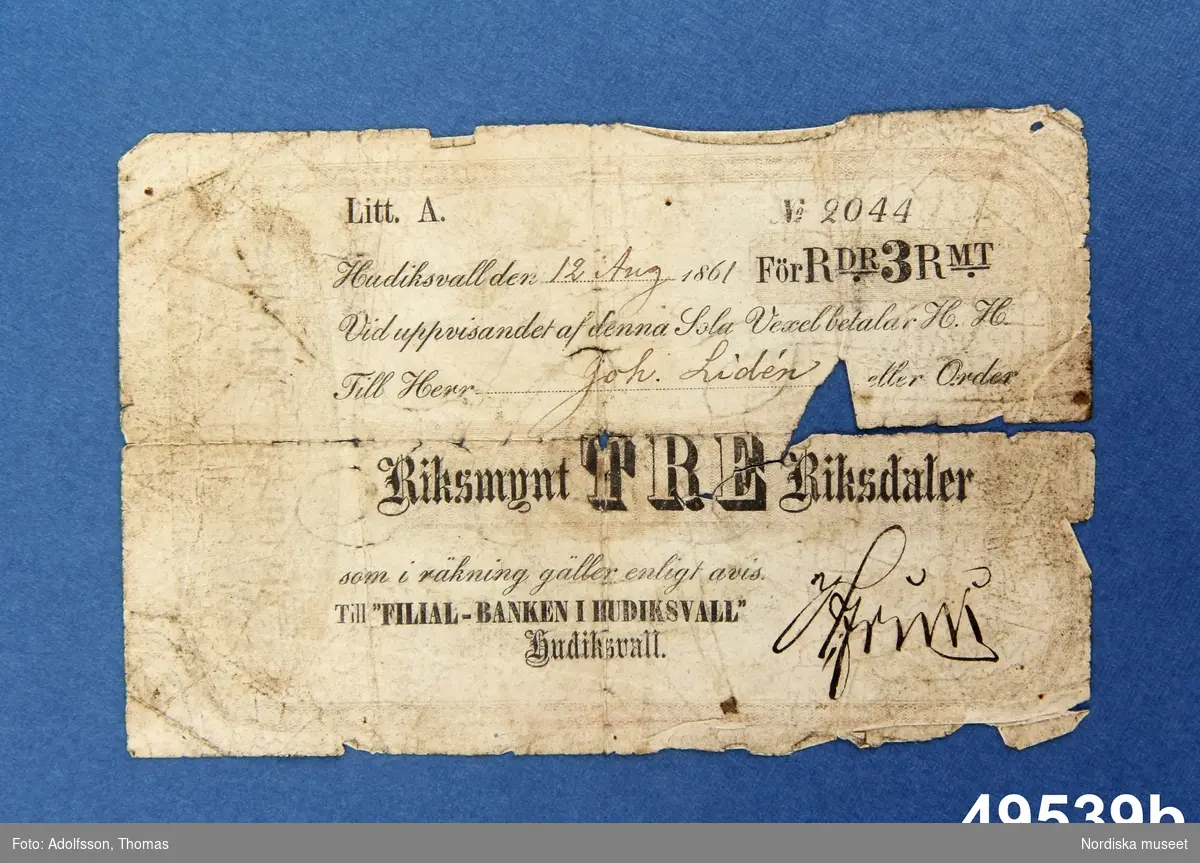 Litt. A.
№ 2044
Hudiksvall den 12 Aug 1861
För RDR 3 RMT
Vid uppvisandet af denna Sola Vexel betalar H. H.
Till Herr Joh. Lidén eller Order
Riksmynt TRE Riksdaler
som i räkning gäller enligt avis.
Till "FILIAL-BANKEN I HUDIKSVALL"
Hudiksvall.
49539b
Foto: Adolfsson, Thomas
Nordiska museet